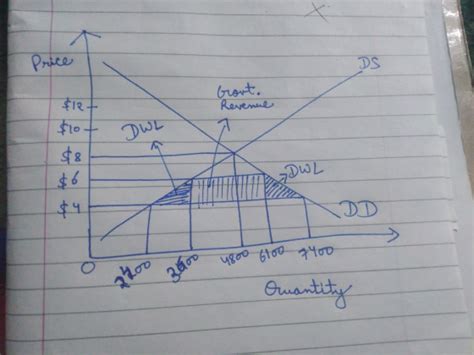 Price
DS
Govt.
Revenue
$12
$10
DWL
$8
$6
DWL
$4
DD
0
3600
4800
6100
7400
Quantity